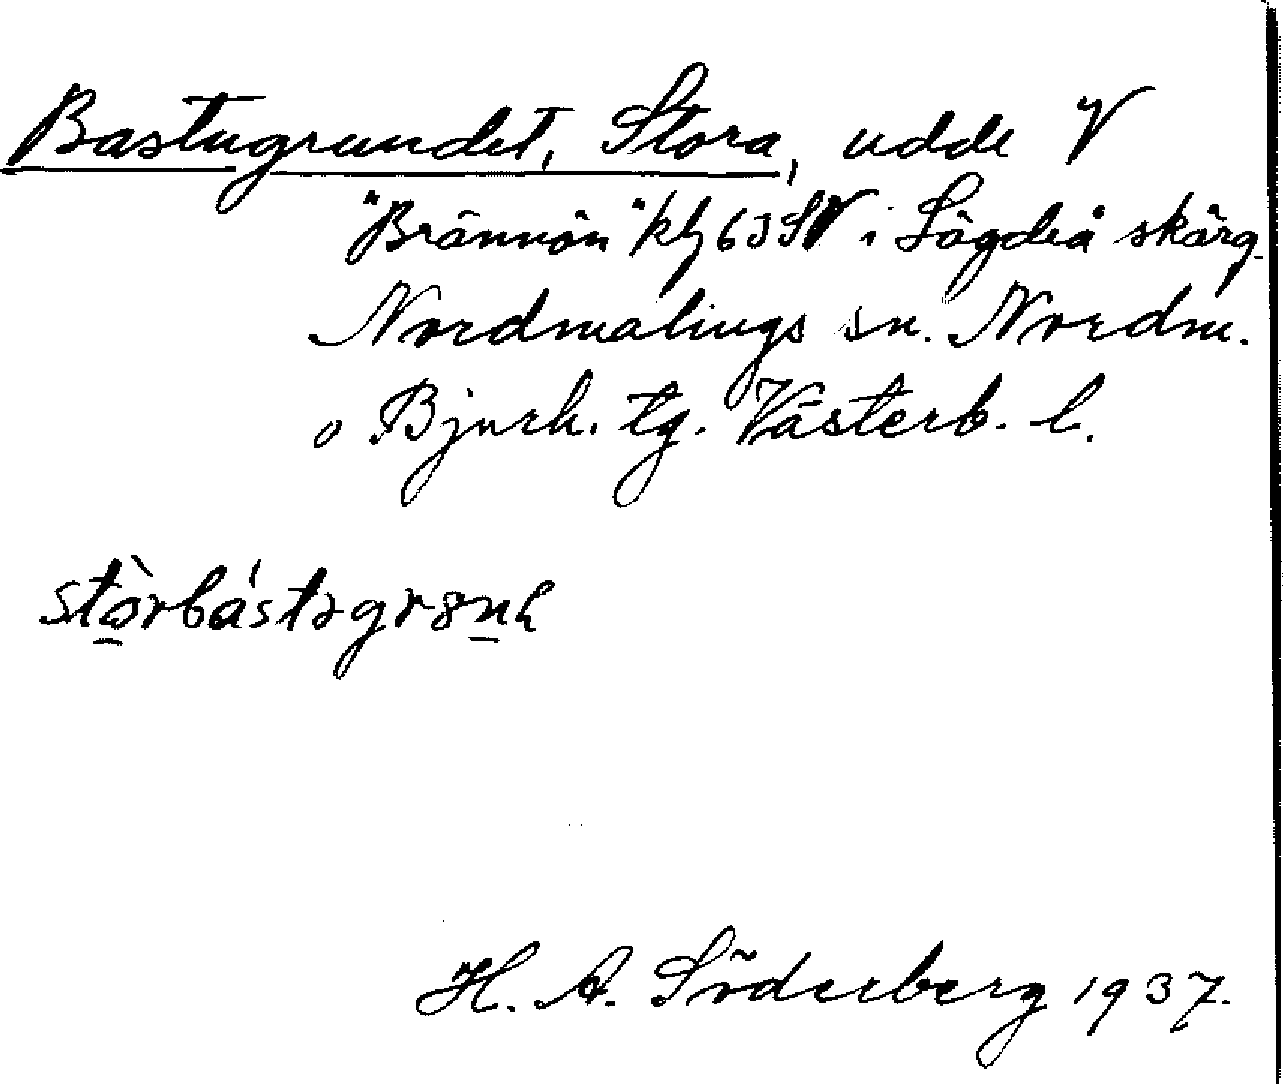 Bastugrundet, Stora, udde V
"Brännön" kbl 63 SV i Lögdeå skärg.
Nordmalings sn. Nordm.
o Bjurh. tg. Västerb. l.
H. A. Söderberg 1937.